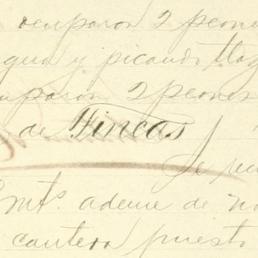 ocuparon 2 peones
agua y picando
ocuparon 2 peones
de Fincas
Se
mts. ademe de
cantera puesto